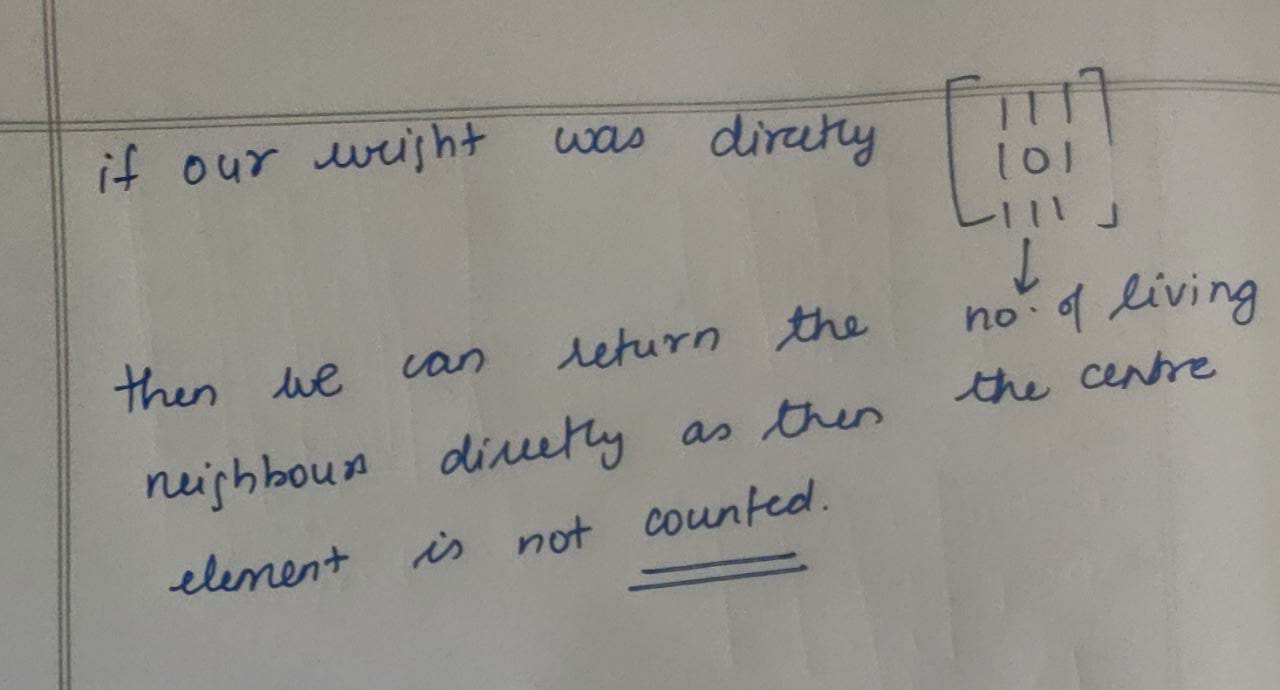 if our weight was directly [1 1 1
1 0 1
1 1 1]
↓
then we can return the no. of living
neighbours directly as then the centre
element is not counted.